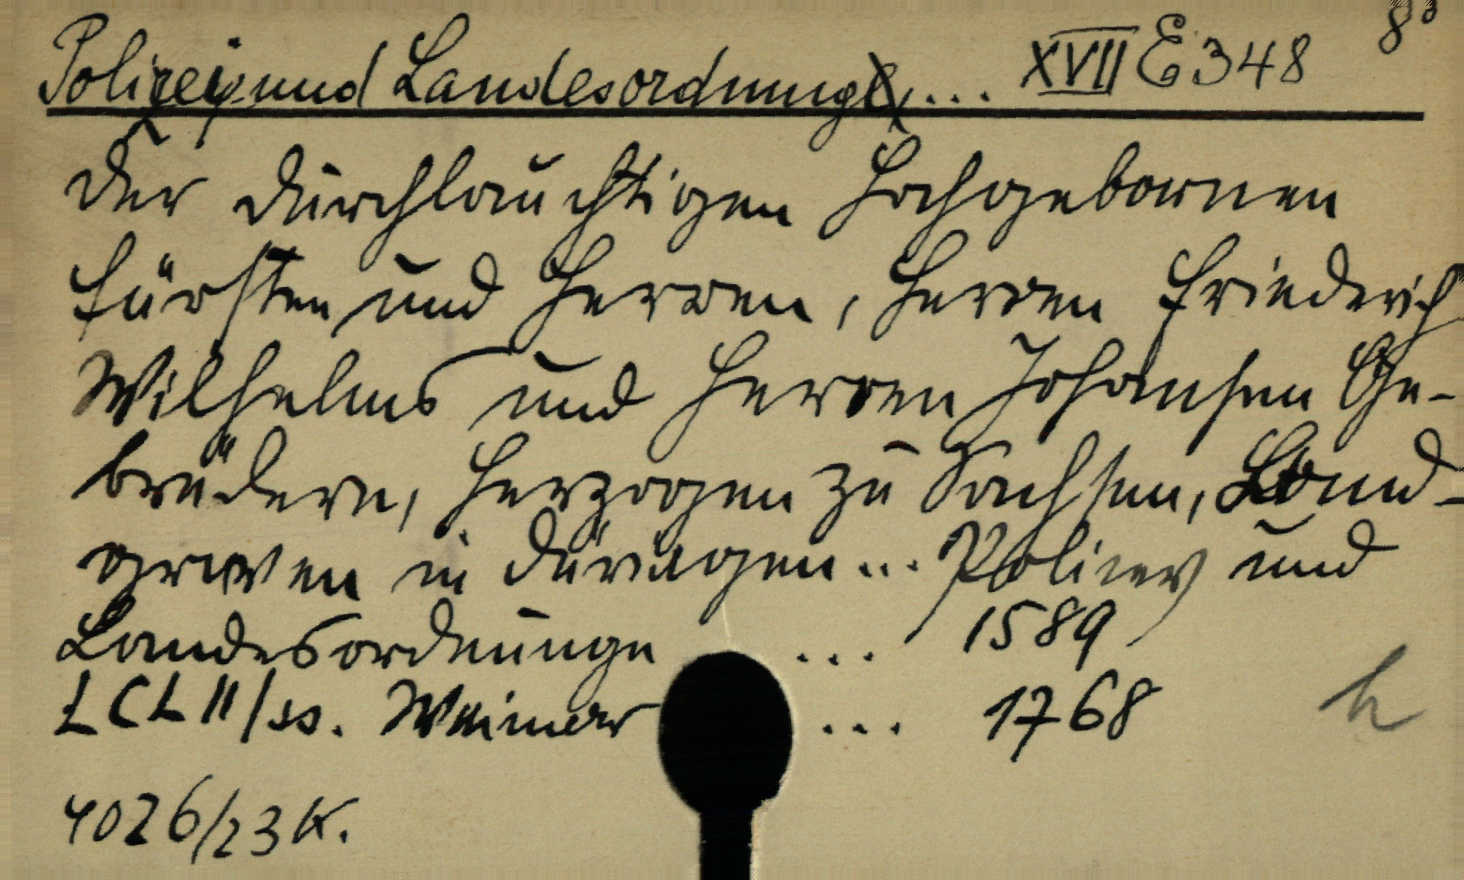 Polizey- und Landesordnung, ... XVII E 348 8°
Der durchlauchtigen Hochgebornen
Fürsten und Herren, Herren Friederich
Wilhelms und Herren Johansen Ge-
brüdern, Herzogen zu Sachsen, Land-
graven in Düringen ... Policey und
Landesordnunge ... 1589
LCL II/ss. Weimar ... 1768
4026/23 K.